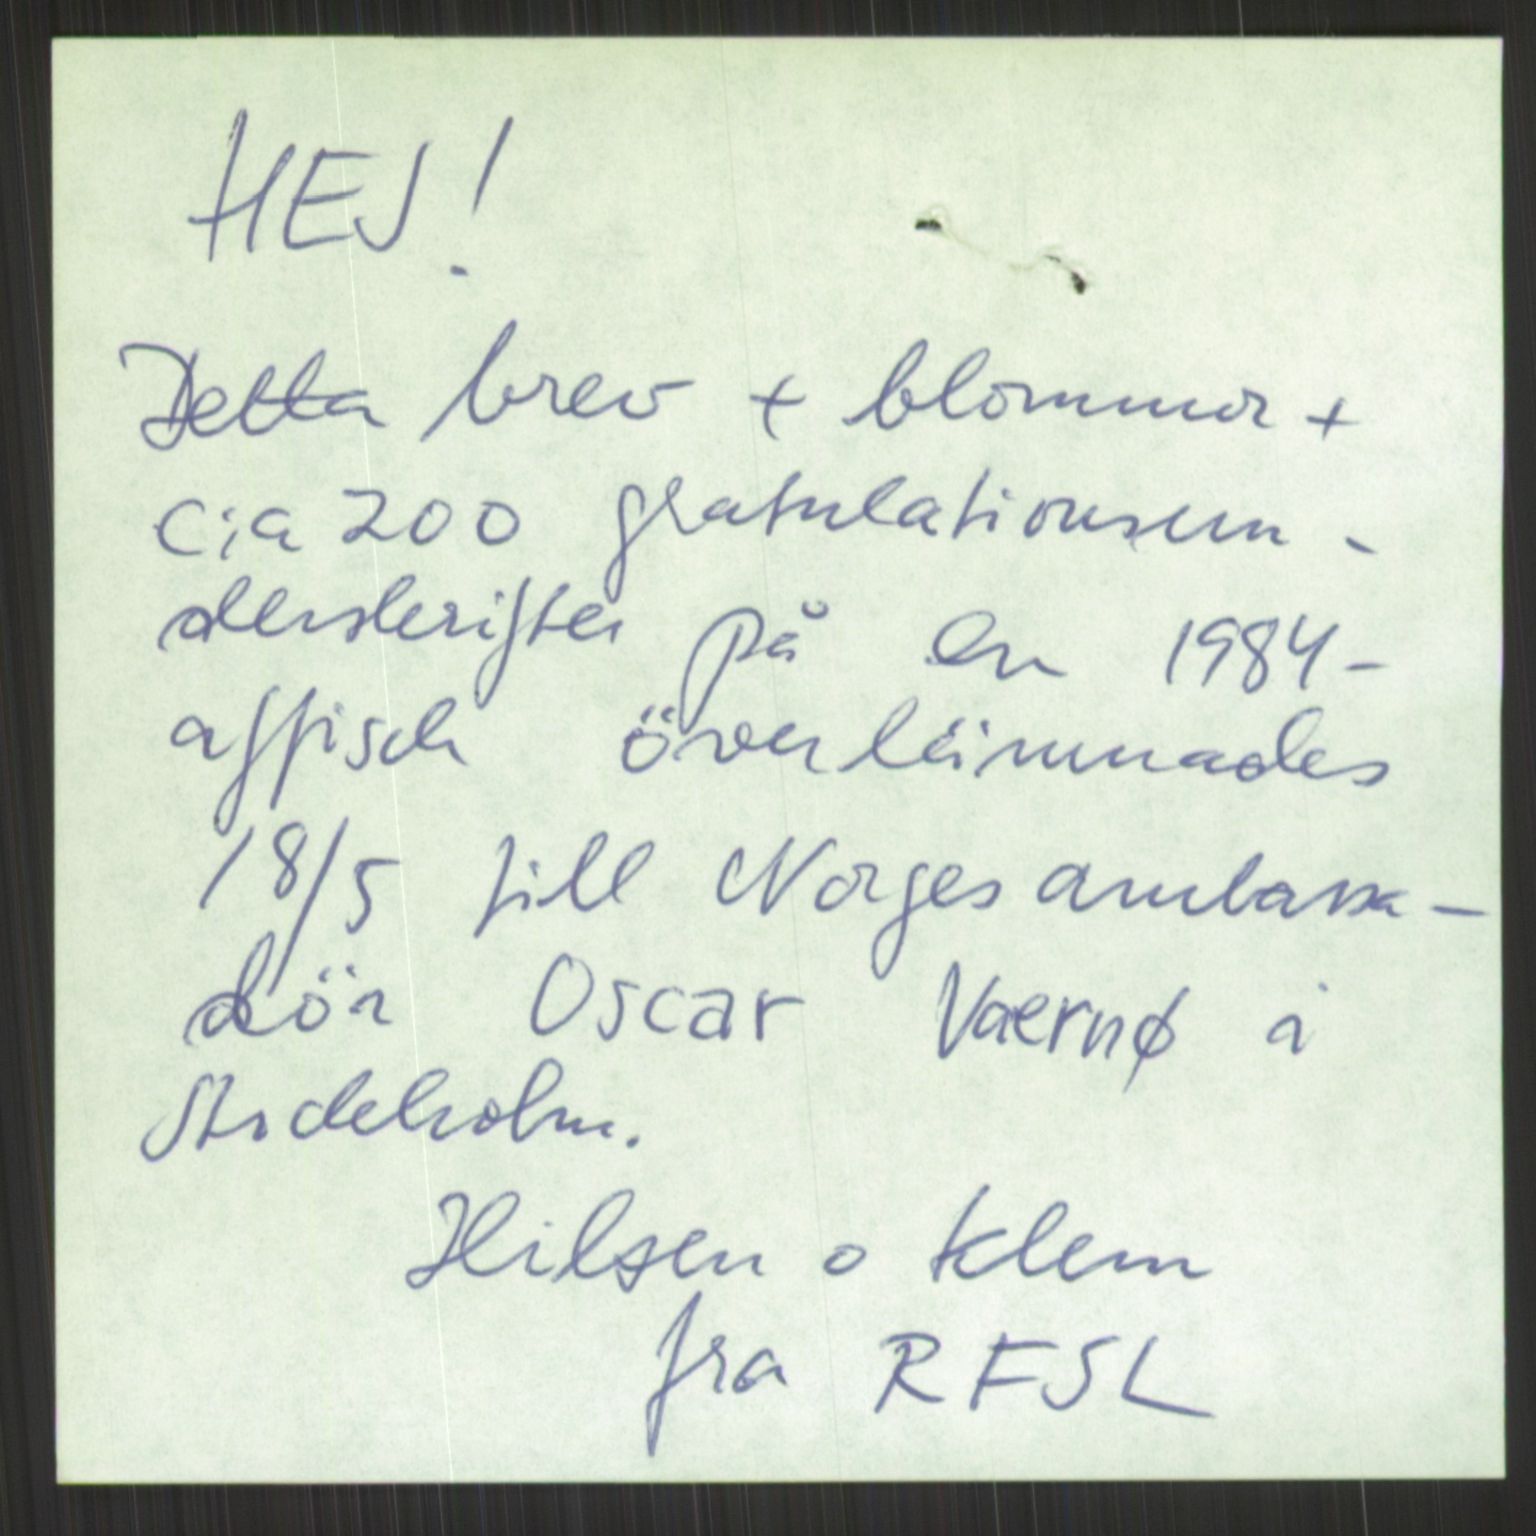 HEJ!
Detta brev + blommor +
c:a 200 gratulationsun-
derskrifter på en 1984-
affisch överlämnades
18/5 till Norges ambassa-
dör Oscar Vaernø i
Stockholm.
Hilsen o klem
fra RFSL